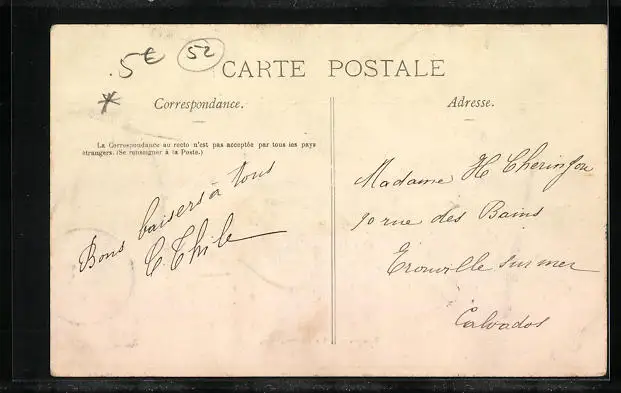 5€ 52
CARTE POSTALE
*
Correspondance.
Adresse.
La Correspondance au recto n'est pas acceptée par tous les pays
étrangers. (Se renseigner à la Poste.)
Bons baisers à tous
Madame H
rue des Bains
Trouville sur mer
Calvados